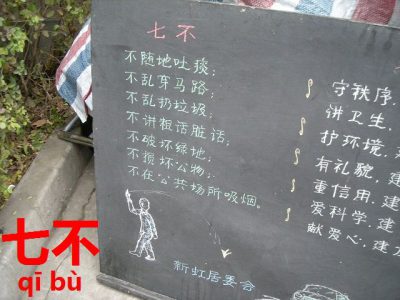 七不
不随地吐痰;
不乱穿马路;
不乱扔垃圾;
不讲粗话脏话;
不破坏绿地;
不损坏公物;
不在公共场所吸烟。
新虹居委会
守秩序.
讲卫生.
护环境.
有礼貌.建
重信用.建
爱科学.建
献爱心.建
七不
qī bù